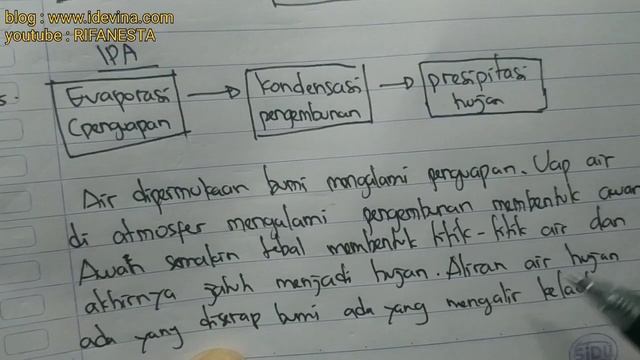 blog : www.idevina.com
youtube : RIFANESTA
IPA
5.
Evaporasi
(penguapan
kondensasi
pengembunan
presipitasi
hujan
Air dipermukaan bumi mengalami penguapan. Uap air
di atmosfer mengalami pengembunan membentuk awan
Awan semakin tebal membentuk titik-titik air dan
akhirnya jatuh menjadi hujan. Aliran air hujan
ada yang diserap bumi ada yang mengalir
SIDU